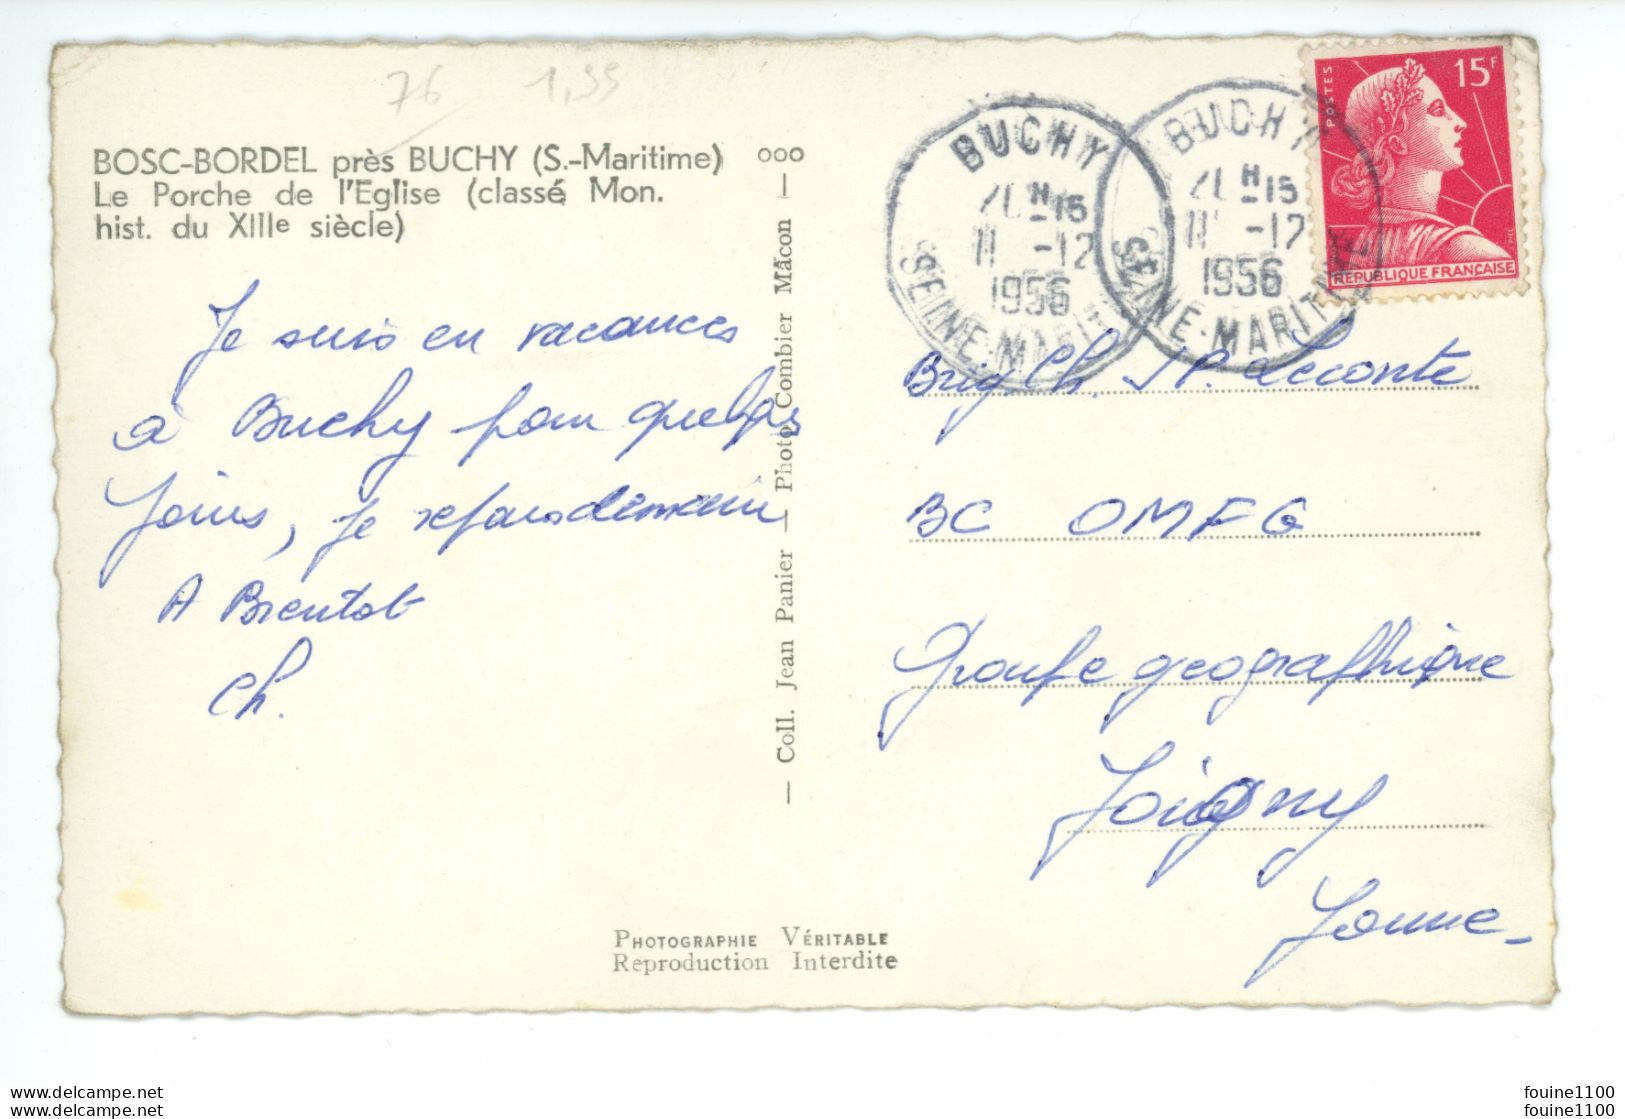 76 1,55
BOSC-BORDEL près BUCHY (S.-Maritime) ooo
Le Porche de l'Eglise (classé Mon.
hist. du XIIIe siècle)
Je suis en vacances
à Buchy pour quelques
Jours, je repars demain
A Bientot
Ch.
— Coll. Jean Panier — Photo Combier Mâcon —
PHOTOGRAPHIE VÉRITABLE
Reproduction Interdite
BUCHY
H 15
11 -12
1956
SEINE-MARITIME
BUCHY
H 15
11 -12
1956
SEINE-MARITIME
POSTES
15F
REPUBLIQUE FRANÇAISE
Brig Ch JP. Leconte
BC OMFG
Groupe geographique
Joigny
Yonne
delcampe.net
delcampe.net
fouine1100
fouine1100